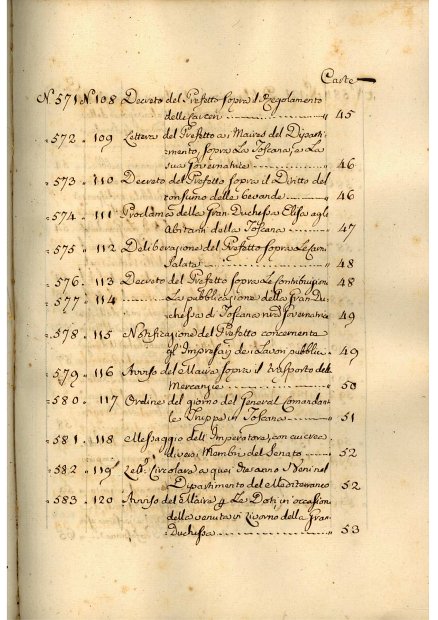 Carte
N. 571 N. 108 Decreto del Prefetto sopra il Regolamento
delle Carceri 45
572. 109 Lettera del Prefetto a i Maires del Diparti-
mento, sopra La Toscana, e La
sua Governatrice 46
573. 110 Decreto del Prefetto sopra il Diritto del
consumo delle bevande 46
574. 111 Proclama della Gran Duchessa Elisa agli
Abitanti della Toscana 47
575. 112 Deliberazione del Prefetto sopra Le Carni
Salate 48
576. 113 Decreto del Prefetto sopra Le Contribuzioni 48
577. 114 La pubblicazione della Gran Du-
chessa di Toscana Governatrice 49
578. 115 Notificazione del Prefetto concernente
gl'Impresarj de i Lavori pubblici 49
579. 116 Avviso del Maire sopra il trasporto delle
Mercanzie 50
580. 117 Ordine del giorno del General Comandan-
te Le Truppe in Toscana 51
581. 118 Messaggio dell'Imperatore, con cui crea
diversi Membri del Senato 52
582. 119 Circolare a quei che sono Neri nel
Dipartimento del Mediterraneo 52
583. 120 Avviso del Maire p Le Doti, in occasione
della venuta in Livorno della Gran
Duchessa 53